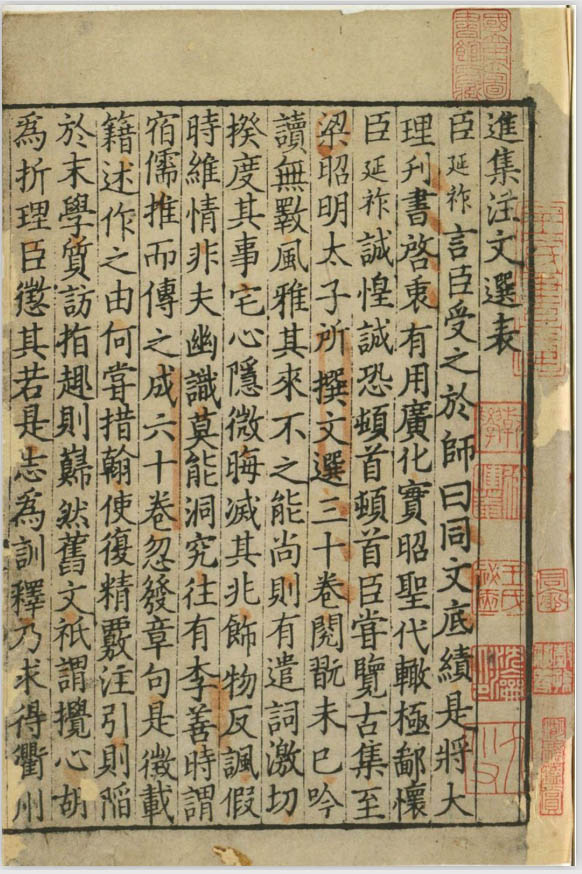 進集注文選表
臣延祚言臣受之於師曰同文底績是將大
理刋書啓衷有用廣化實昭聖代輙極鄙懷
臣延祚誠惶誠恐頓首頓首臣甞覽古集至
梁昭明太子所撰文選三十卷閱翫未已吟
讀無斁風雅其來不之能尚則有遣詞激切
揆度其事宅心隱微晦滅其兆飾物反諷假
時維情非夫幽識莫能洞究往有李善時謂
宿儒推而傳之成六十卷忽發章句是徵載
籍述作之由何甞措翰使復精覈注引則陷
於末學質訪指趣則巋然舊文祇謂攪心胡
爲折理臣懲其若是志爲訓釋乃求得衢州